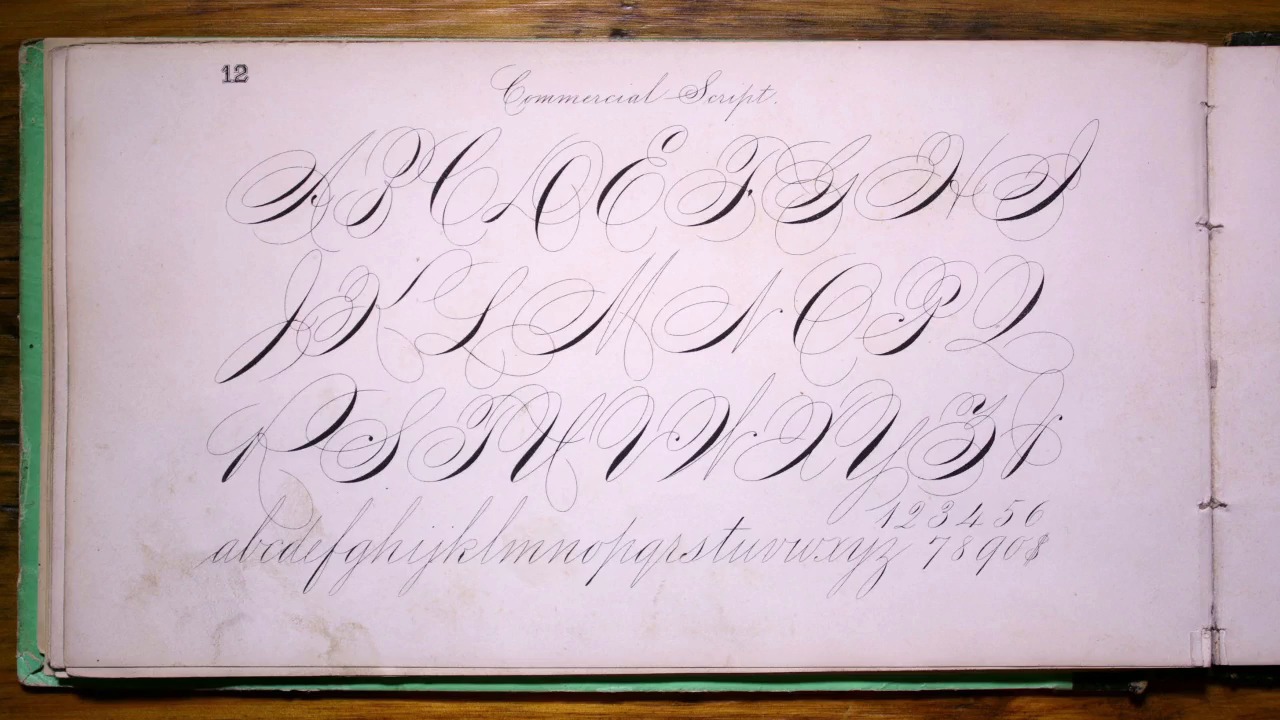 12
Commercial Script.
A B C D E F G H I
J K L M N O P Q
R S T U V W X Y Z &
1 2 3 4 5 6
abcdefghijklmnopqrstuvwxyz 7 8 9 0 $